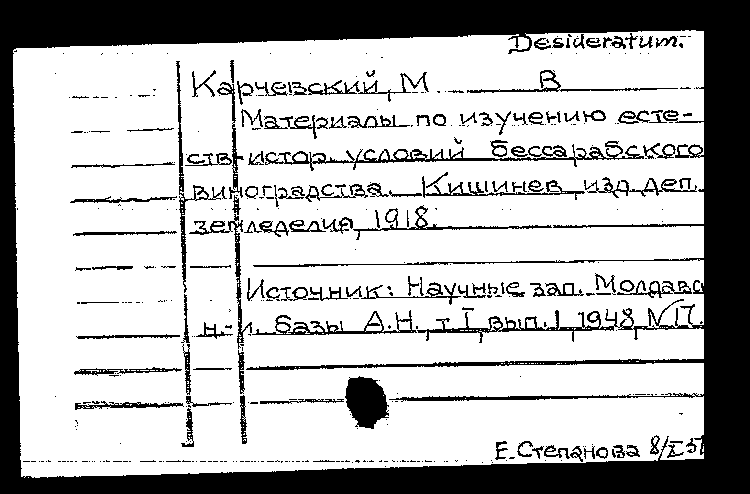 Desideratum.
Карчевский, М В
Материалы по изучению есте-
ств-истор. условий бессарабского
виноградства. Кишинев, изд. деп.
земледелия, 1918.
Источник: Научные зап. Молдавс
н.-и. базы А.Н., т I, вып. I, 1948,
Е. Степанова 8/X 51